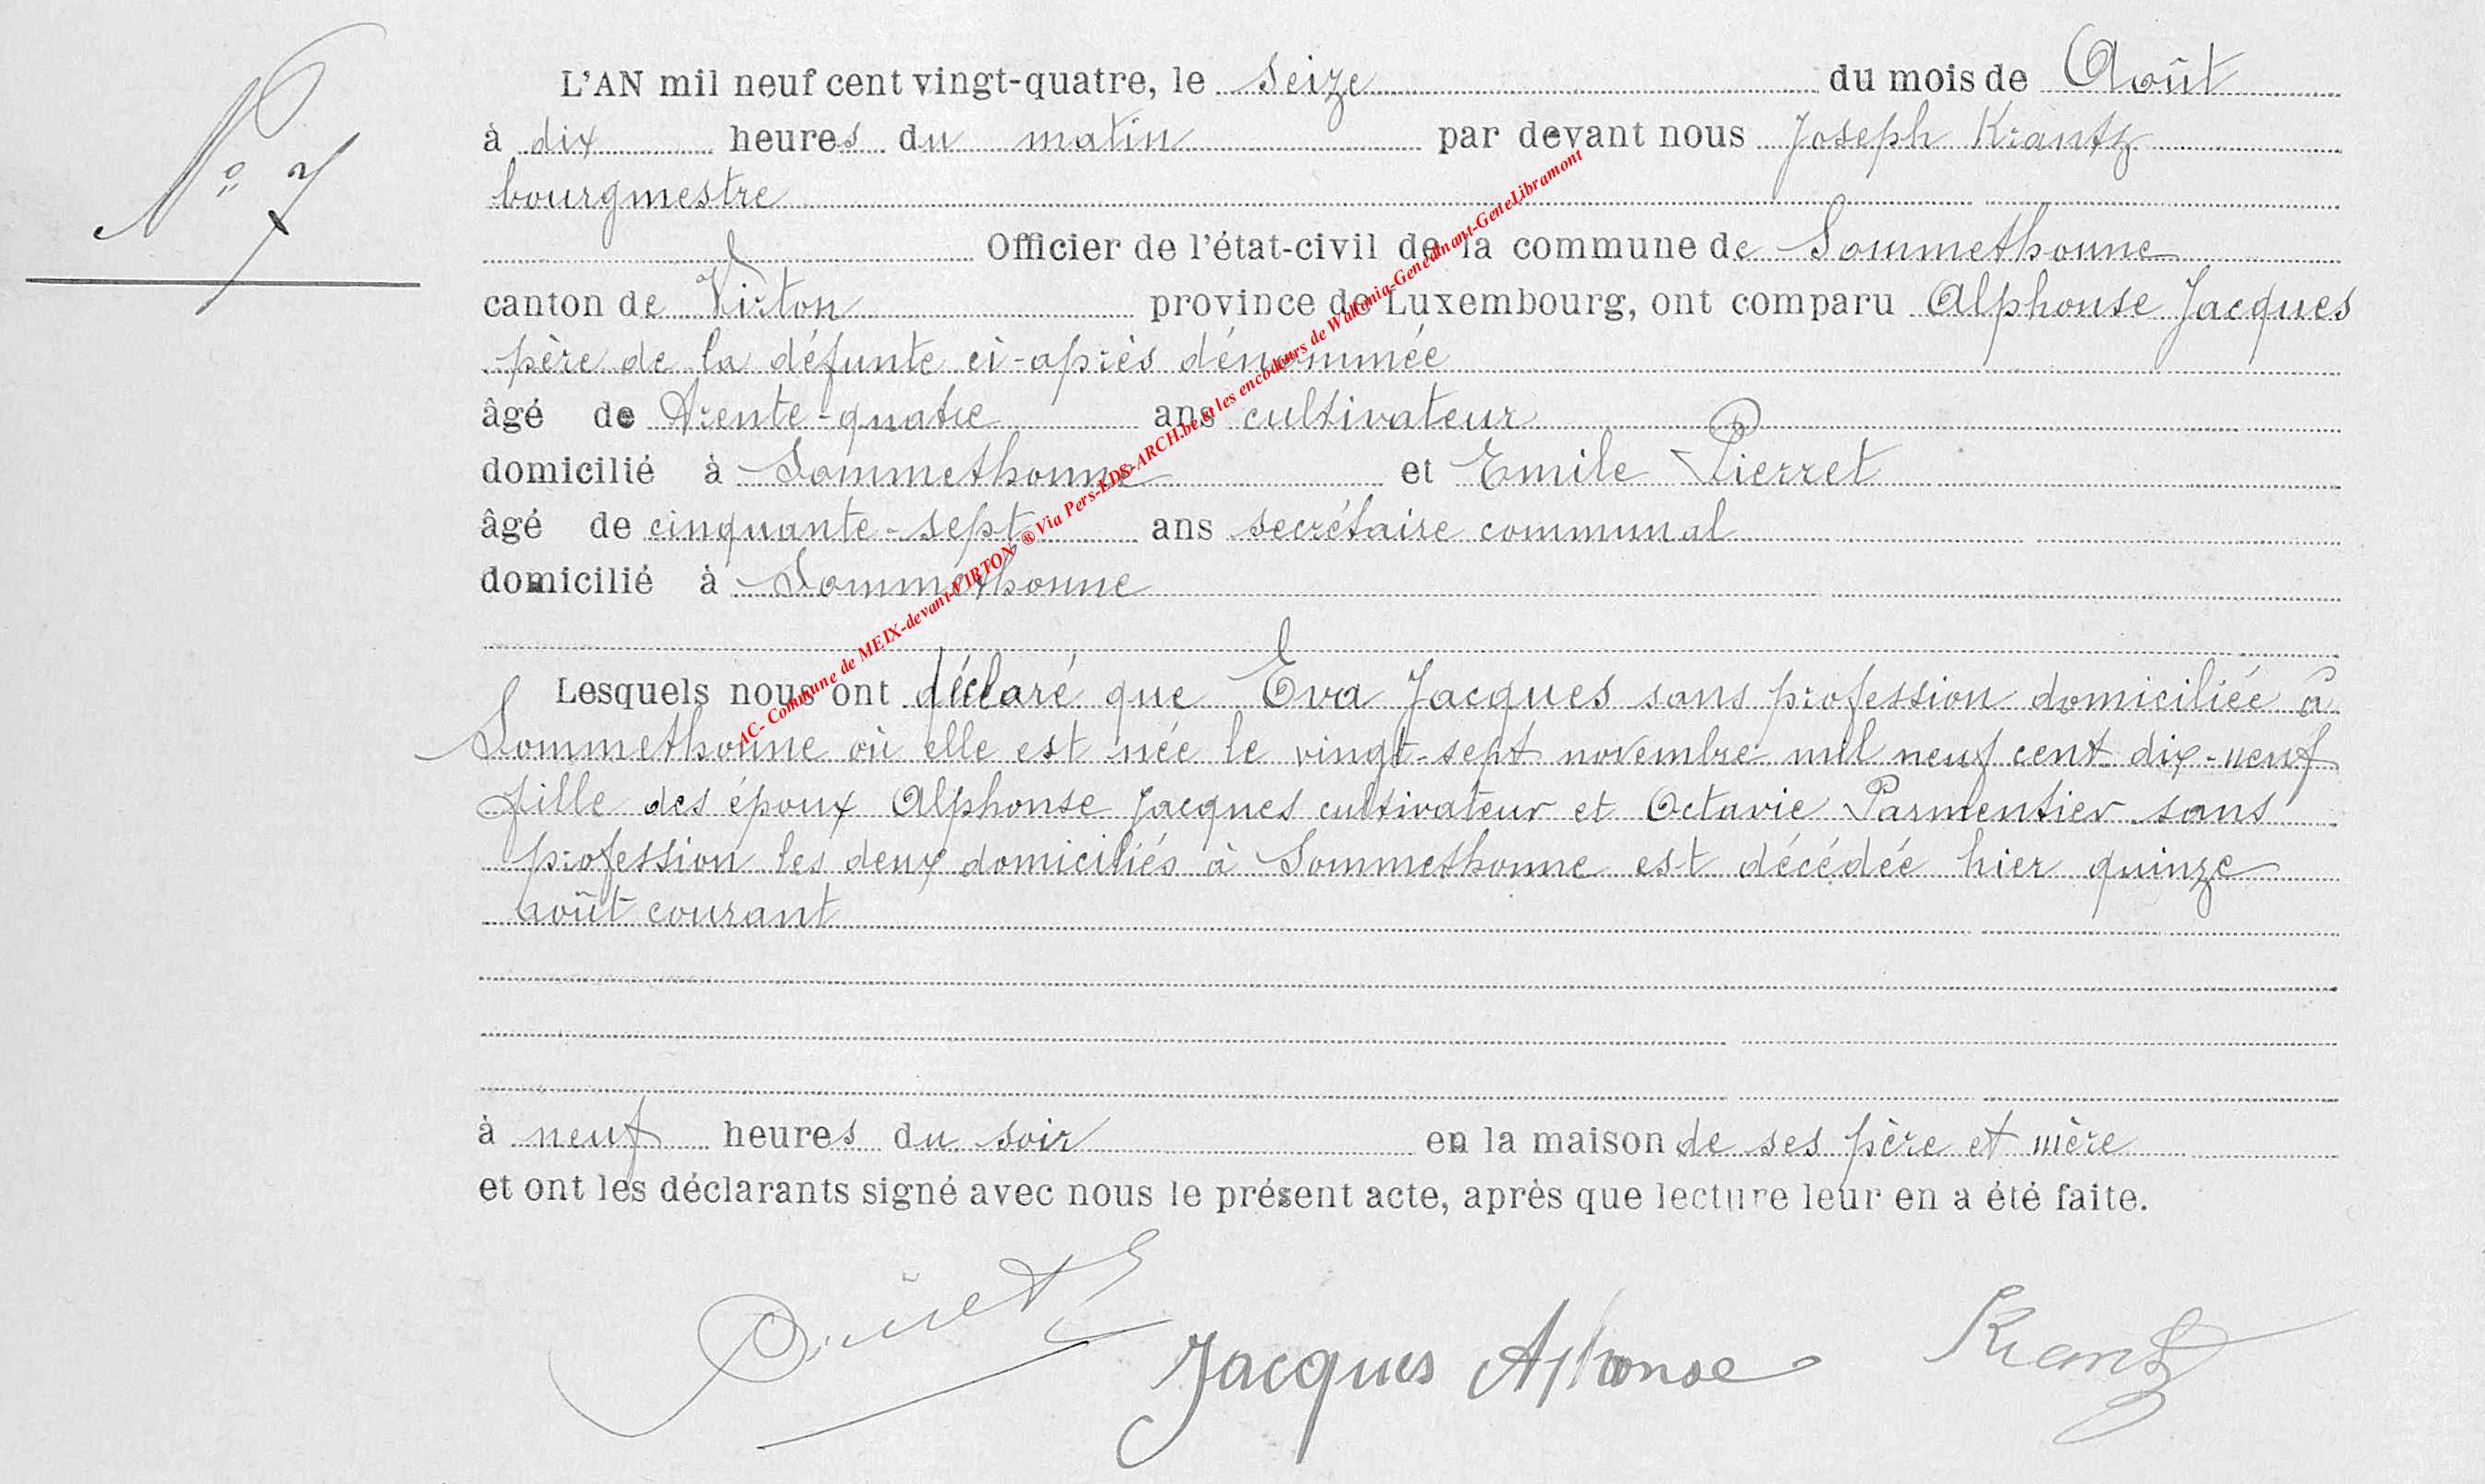 N° 7
L'AN mil neuf cent vingt-quatre, le seize du mois de Août
à dix heures du matin par devant nous Joseph Krantz
bourgmestre
Officier de l'état-civil de la commune de Sommethonne
canton de Virton province de Luxembourg, ont comparu Alphonse Jacques
père de la défunte ci-après dénommée
âgé de trente-quatre ans cultivateur
domicilié à Sommethonne et Emile Pierret
âgé de cinquante-sept ans secrétaire communal
domicilié à Sommethonne
Lesquels nous ont déclaré que Eva Jacques sans profession domiciliée à
Sommethonne où elle est née le vingt-sept novembre mil neuf cent dix-neuf
fille des époux Alphonse Jacques cultivateur et Octavie Parmentier sans
profession les deux domiciliés à Sommethonne est décédée hier quinze
août courant
à neuf heures du soir en la maison de ses père et mère
et ont les déclarants signé avec nous le présent acte, après que lecture leur en a été faite.
Pierret E Jacques Alphonse Krantz
AC- Commune de MEIX-devant-VIRTON ® Via Pers-LDS-ARCH.be et les encodeurs de Wallonia-Genedinant-GeneLibramont